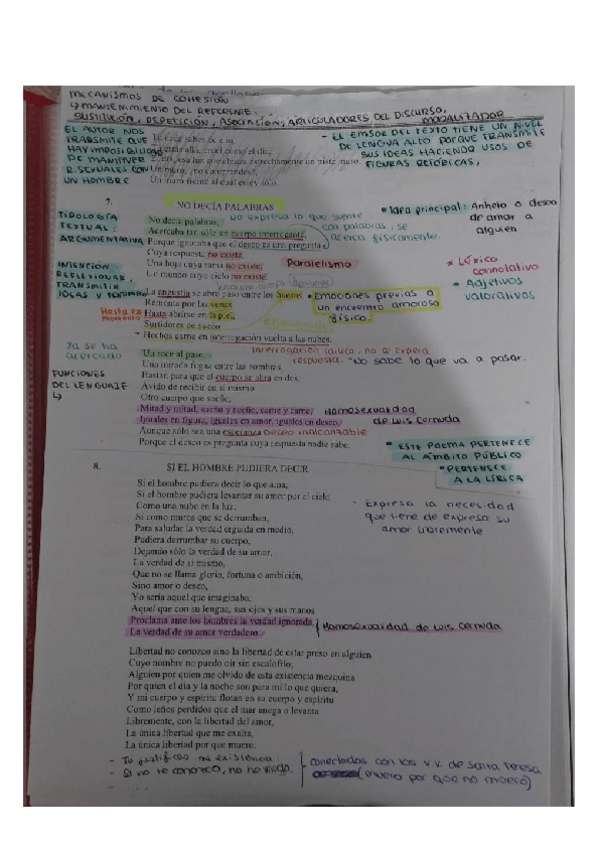 MECANISMOS DE COHESIÓN
↳ MANTENIMIENTO DEL REFERENTE:
SUSTITUCIÓN, REPETICIÓN, ASOCIACIÓN, ARTICULADORES DEL DISCURSO,
MORALIZADOR
EL AUTOR NOS
TRANSMITE QUE
HAY IMPOSIBILIDAD
DE MANTNER
R. SEXUALES CON
UN HOMBRE
Un muro, ¿no comprendes?,
Un muro frente al cual estoy sólo.
- EL EMISOR DEL TEXTO TIENE UN NIVEL
DE LENGUA ALTO PORQUE TRANSMITE
SUS IDEAS HACIENDO USOS DE
FIGURAS RETÓRICAS.
7.
NO DECÍA PALABRAS
TIPOLOGÍA
TEXTUAL:
ARGUMENTATIVA
No decía palabras, no expresa lo que siente
con palabras, se
acerca físicamente.
Acercaba tan sólo un cuerpo interrogante,
Porque ignoraba que el deseo es una pregunta
Cuya respuesta no existe,
Una hoja cuya rama no existe, Paralelismo
Un mundo cuyo cielo no existe.
* Idea principal: Anhelo o deseo
de amar a
alguien
* Léxico
connotativo
* Adjetivos
valorativos
INTENCIÓN:
REFLEXIONAR,
TRANSMITIR
IDEAS Y
La angustia se abre paso entre los huesos,
Remonta por las venas
Hasta abrirse en la piel,
Surtidores de sueño
Hechos carne en interrogación vuelta a las nubes.
* Emociones previas a
un encuentro amoroso
físico
Hasta en
Ya se ha
acercado
Un roce al paso,
Una mirada fugaz entre las sombras,
Bastan para que el cuerpo se abra en dos,
Ávido de recibir en sí mismo
Otro cuerpo que sueñe;
Interrogación, no se espera
respuesta. * No sabe lo que va a pasar.
FUNCIONES
DEL LENGUAJE
↳
Mitad y mitad, sueño y sueño, carne y carne, Homosexuaidad
Iguales en figura, iguales en amor, iguales en deseo, de Luis Cernuda
Aunque sólo sea una esperanza Deseo inalcanzable
Porque el deseo es pregunta cuya respuesta nadie sabe.
* ESTE POEMA PERTENECE
AL ÁMBITO PÚBLICO
* PERTENECE
A LA LÍRICA
8.
SI EL HOMBRE PUDIERA DECIR
Si el hombre pudiera decir lo que ama,
Si el hombre pudiera levantar su amor por el cielo
Como una nube en la luz;
Si como muros que se derrumban,
Para saludar la verdad erguida en medio,
Pudiera derrumbar su cuerpo,
Dejando sólo la verdad de su amor,
La verdad de sí mismo,
Que no se llama gloria, fortuna o ambición,
Sino amor o deseo,
Yo sería aquel que imaginaba;
Aquel que con su lengua, sus ojos y sus manos
Proclama ante los hombres la verdad ignorada,
La verdad de su amor verdadero.
- Expresa la necesidad
que tiene de expresa su
amor libremente
Homosexuaidad de Luis Cernuda
Libertad no conozco sino la libertad de estar preso en alguien
Cuyo nombre no puedo oír sin escalofrío;
Alguien por quien me olvido de esta existencia mezquina
Por quien el día y la noche son para mí lo que quiera,
Y mi cuerpo y espíritu flotan en su cuerpo y espíritu
Como leños perdidos que el mar anega o levanta
Libremente, con la libertad del amor,
La única libertad que me exalta,
La única libertad por que muero.
- Tú justificas mi existencia:
- Si no te conozco, no he vivido.
- conectadas con los v.v. de Santa Teresa
(muero por que no muero)